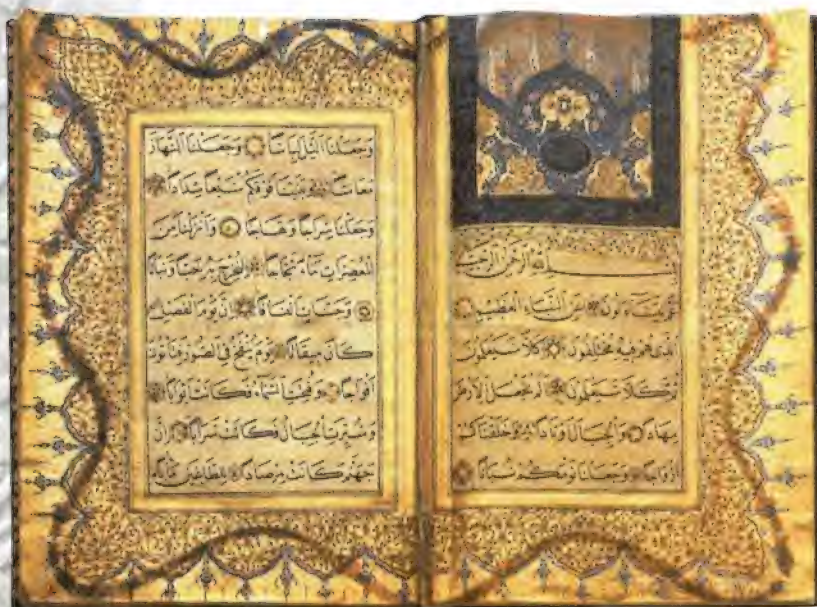 بسم الله الرحمن الرحيم
عم يتساءلون عن النباء العظيم
الذى هم فيه مختلفون كلا سيعلمون
ثم كلا سيعلمون الم نجعل الارض
مهادا والجبال اوتادا وخلقناكم
ازواجا وجعلنا نومكم سباتا
وجعلنا اليل لباسا وجعلنا النهار
معاشا وبنينا فوقكم سبعا شدادا
وجعلنا سراجا وهاجا وانزلنا من
المعصرات ماء ثجاجا لنخرج به حبا ونباتا
وجنات الفافا ان يوم الفصل
كان ميقاتا يوم ينفخ فى الصور فتاتون
افواجا وفتحت السماء فكانت ابوابا
وسيرت الجبال فكانت سرابا ان
جهنم كانت مرصادا للطاغين مابا